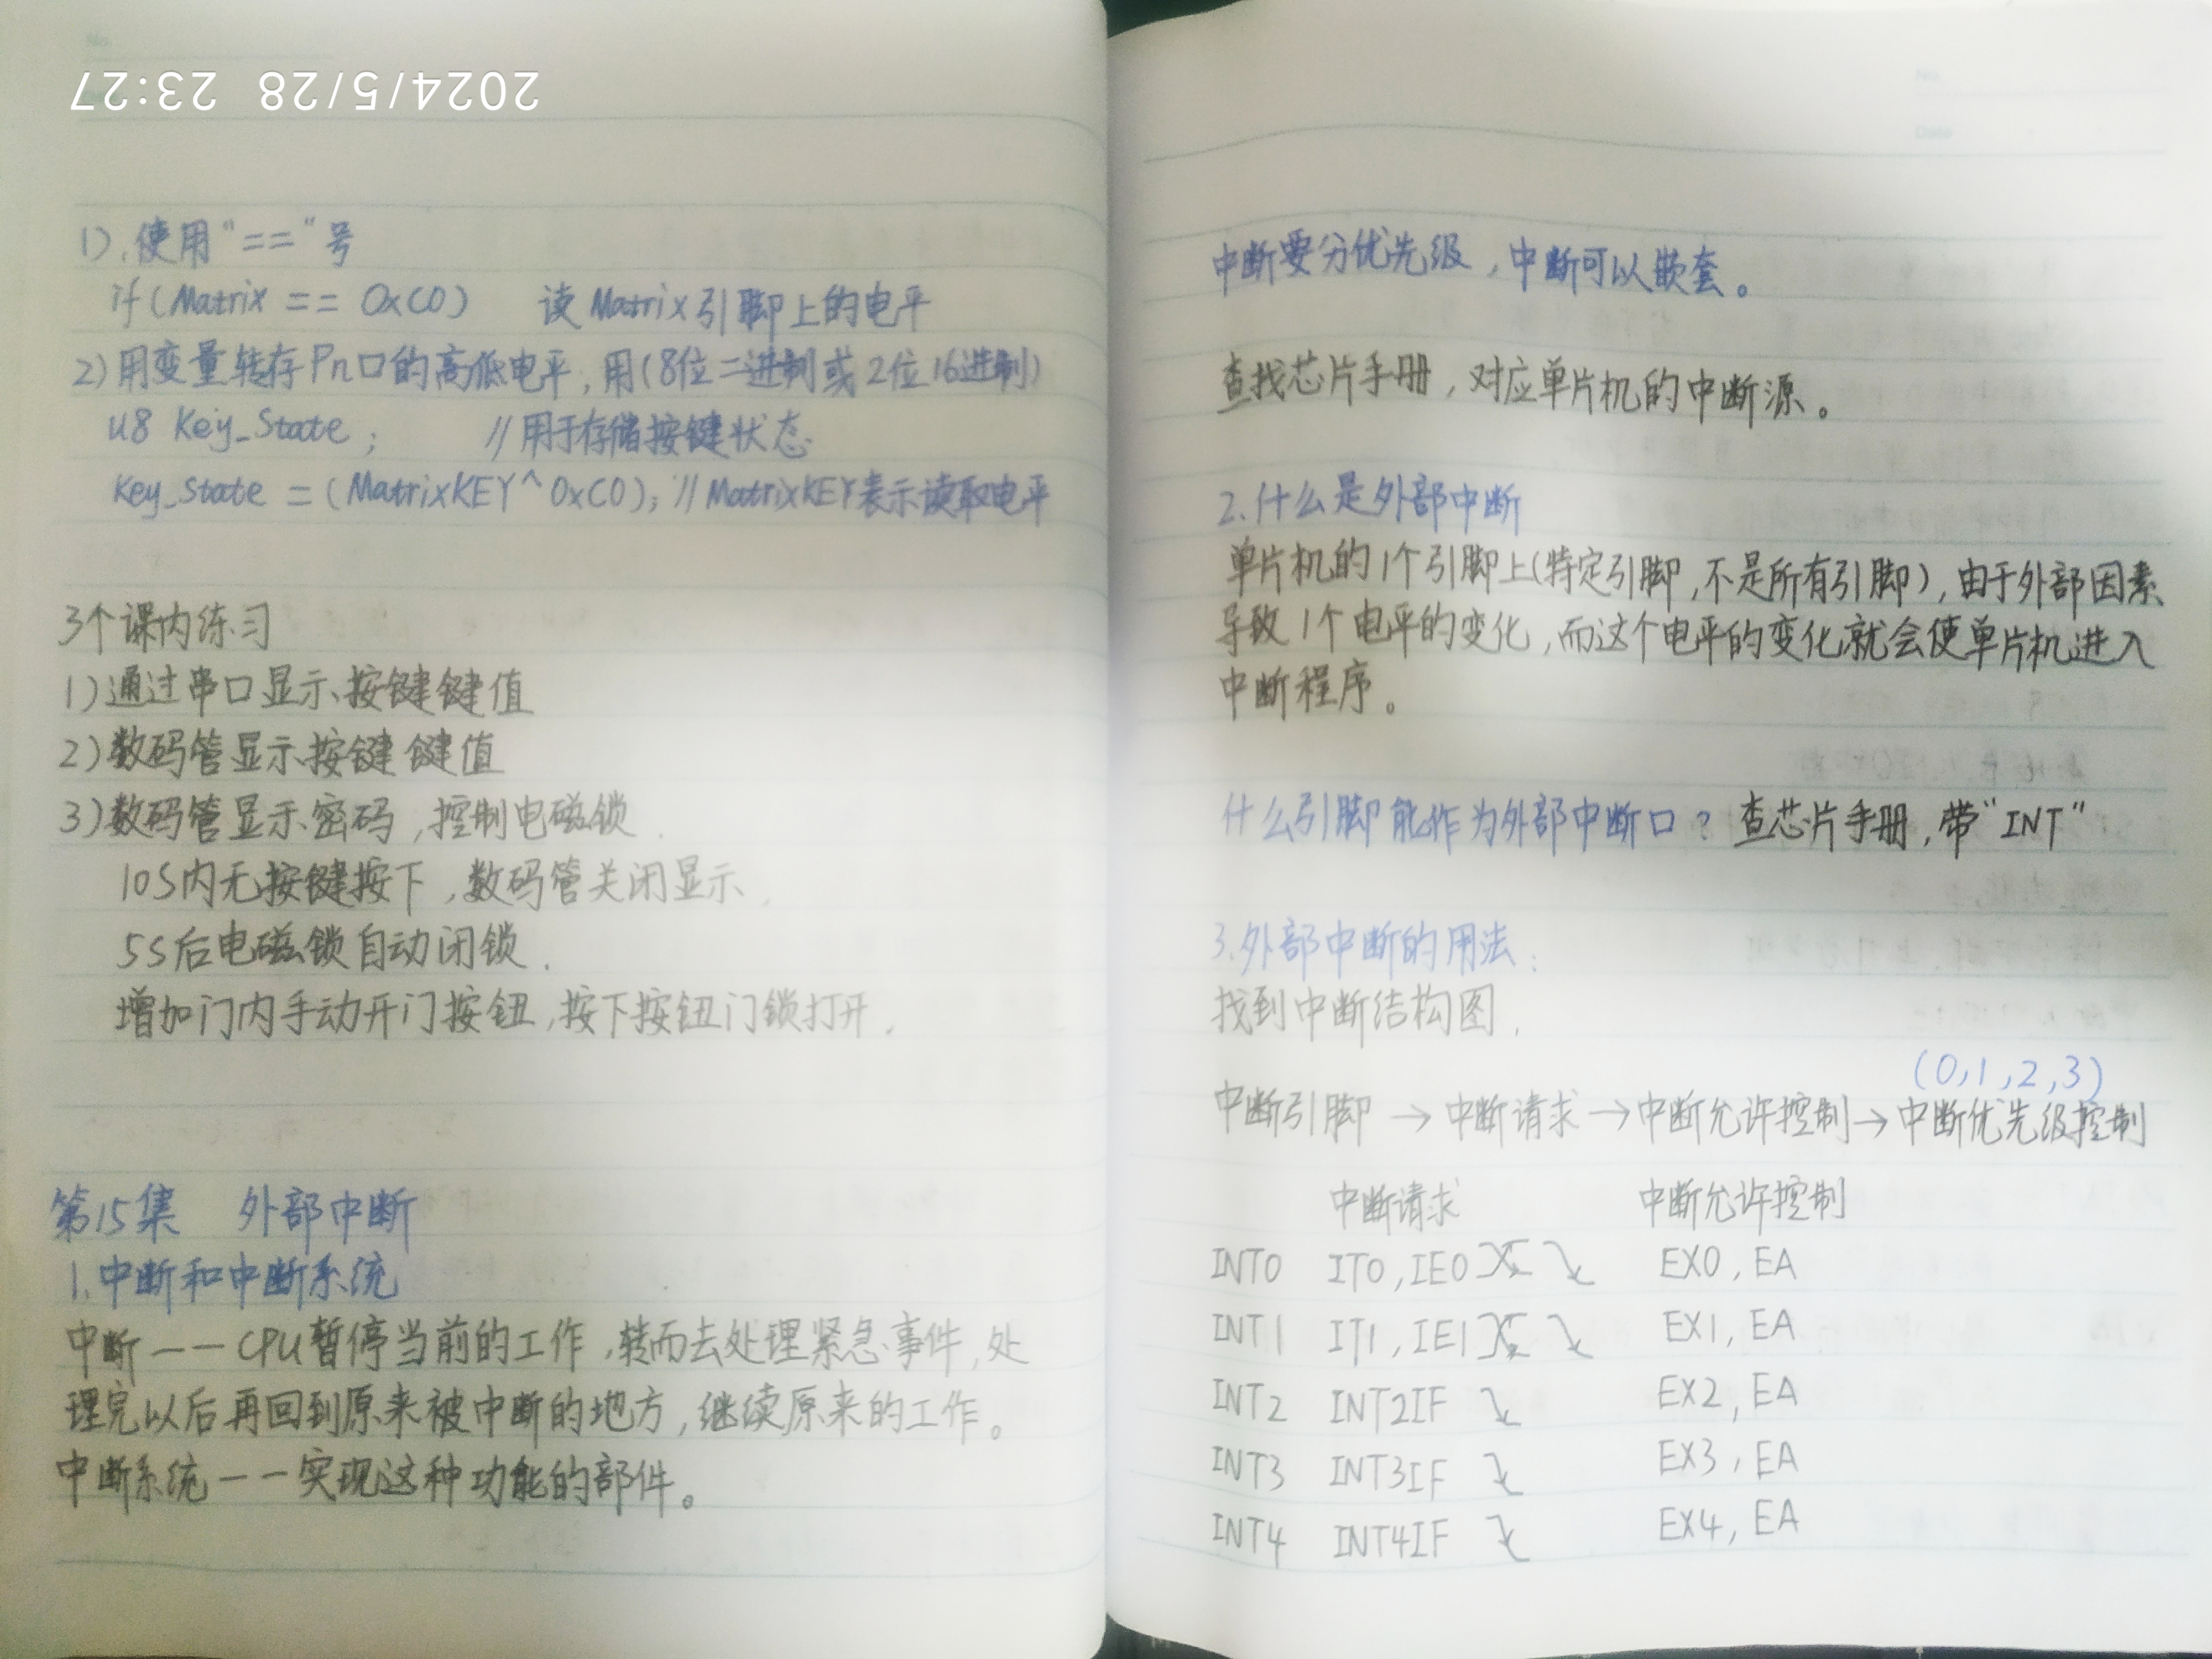 2024/5/28 23:27
1).使用"=="号
if(Matrix == 0xC0) 读Matrix引脚上的电平
2)用变量转存Pn口的高低电平,用(8位二进制或2位16进制)
u8 Key_State; //用于存储按键状态
Key_State =(MatrixKEY^0xC0); //MatrixKEY表示读取电平
3个课内练习
1)通过串口显示按键键值
2)数码管显示按键键值
3)数码管显示密码,控制电磁锁.
10S内无按键按下,数码管关闭显示,
5S后电磁锁自动闭锁.
增加门内手动开门按钮,按下按钮门锁打开.
第15集 外部中断
1.中断和中断系统
中断——CPU暂停当前的工作,转而去处理紧急事件,处
理完以后再回到原来被中断的地方,继续原来的工作。
中断系统——实现这种功能的部件。
No.
Date
中断要分优先级,中断可以嵌套。
查找芯片手册,对应单片机的中断源。
2.什么是外部中断
单片机的1个引脚上(特定引脚,不是所有引脚),由于外部因素
导致1个电平的变化,而这个电平的变化就会使单片机进入
中断程序。
什么引脚能作为外部中断口?查芯片手册,带"INT"
3.外部中断的用法:
找到中断结构图.
(0,1,2,3)
中断引脚→中断请求→中断允许控制→中断优先级控制
中断请求 中断允许控制
INT0 IT0,IE0 EX0,EA
INT1 IT1,IE1 EX1,EA
INT2 INT2IF EX2,EA
INT3 INT3IF EX3,EA
INT4 INT4IF EX4,EA